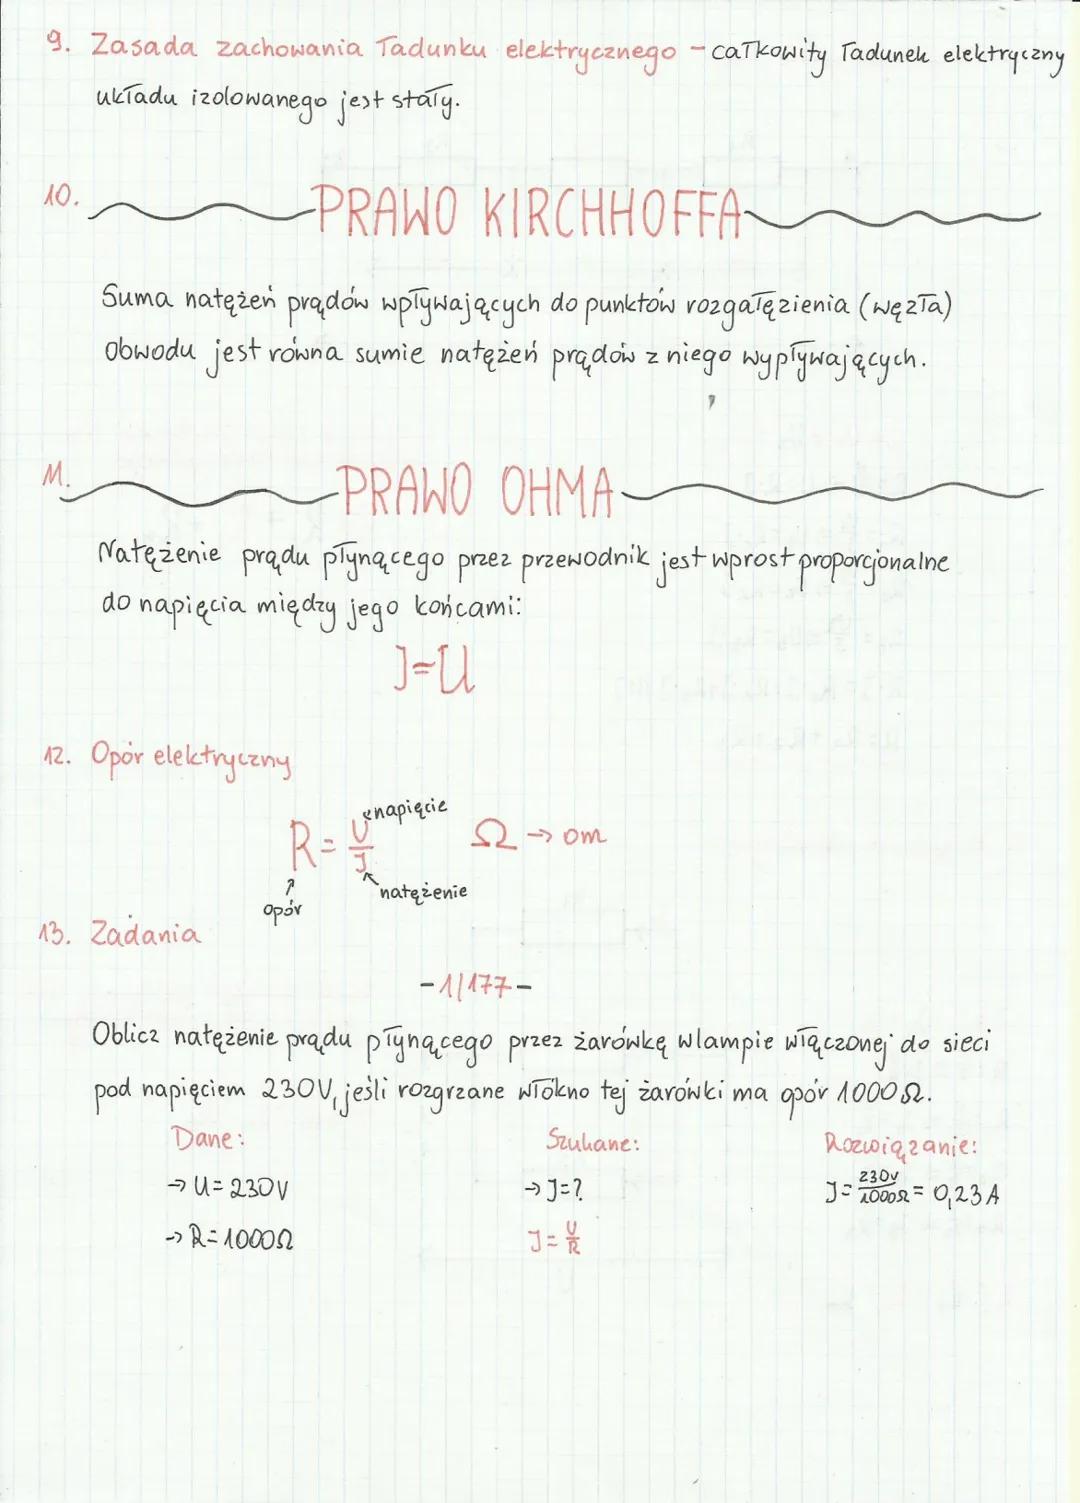 9. Zasada zachowania ładunku elektrycznego - całkowity ładunek elektryczny
układu izolowanego jest stały.
10. PRAWO KIRCHHOFFA
Suma natężeń prądów wpływających do punktów rozgałęzienia (węzła)
obwodu jest równa sumie natężeń prądów z niego wypływających.
11. PRAWO OHMA
Natężenie prądu płynącego przez przewodnik jest wprost proporcjonalne
do napięcia między jego końcami:
J=U
12. Opór elektryczny
R = U/J napięcie Ω → om
natężenie
opór
13. Zadania
- 1/177 -
Oblicz natężenie prądu płynącego przez żarówkę w lampie włączonej do sieci
pod napięciem 230V, jeśli rozgrzane włókno tej żarówki ma opór 1000Ω.
Dane: Szukane: Rozwiązanie:
→ U=230V → J=? J= 230V/1000Ω = 0,23A
→ R=1000Ω J= U/R